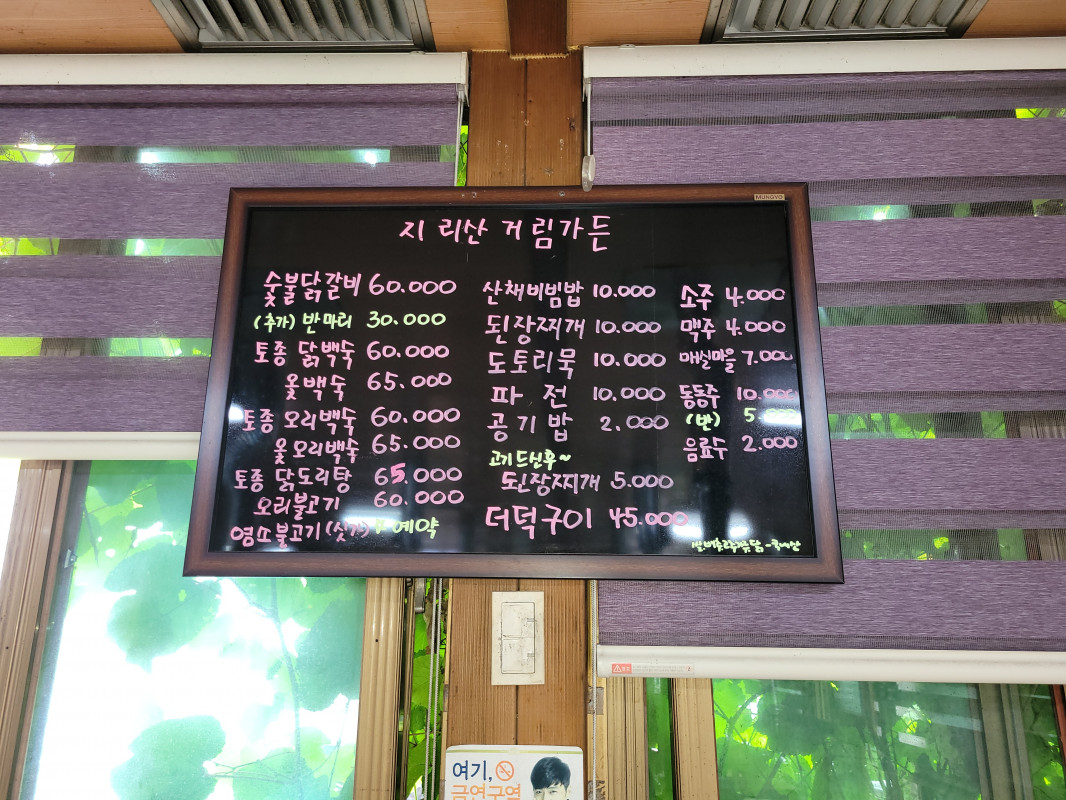 MUNGYO
지리산 거림가든
숯불닭갈비 60.000
(추가) 반마리 30.000
토종 닭백숙 60.000
옻백숙 65.000
토종 오리백숙 60.000
옻오리백숙 65.000
토종 닭도리탕 65.000
오리불고기 60.000
염소불고기(숯거) 예약
산채비빔밥 10.000
된장찌개 10.000
도토리묵 10.000
파 전 10.000
공기밥 2.000
고기드신후~
된장찌개 5.000
더덕구이 45.000
소주 4.000
맥주 4.000
매실마을 7.000
동동주 10.000
(반) 5.000
음료수 2.000
여기,
금연구역